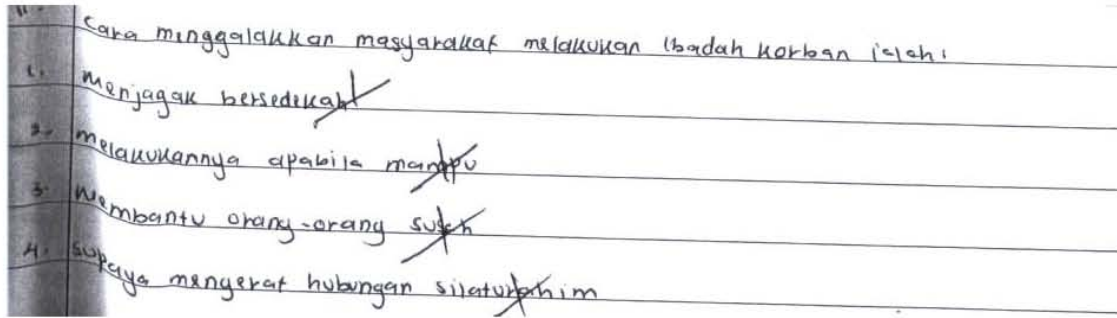 Cara menggalakkan masyarakat melakukan ibadah korban ialah:
1. Menjagak bersedekah
2. melakukannya apabila mampu
3. Membantu orang-orang susah
4. Supaya mengerat hubungan silaturahim